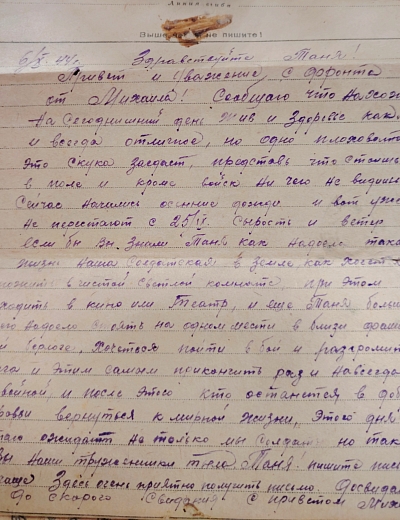 Линия сгиба
Выше не пишите!
6/X 44 г. Здравствуйте Таня!
Привет и Уважение, с фронта
от Михаила! Сообщаю что
На Сегодняшний день Жив и Здоров как
и всегда отлично, но одно
Это Скука заедает, представь что Стоишь
в поле и кроме войск ни чего не видишь
Сейчас начались осенние дожди и вот уже
не перестают с 25/IX. Сырость и ветер
если бы Вы Знали Таня как надоела така
жизнь наша Солдатская в земле как
в чистой Светлой комнате, при этом
ходить в кино или Театр, и еще Таня больш
надоело Стоять на одном месте в близи
берлоге, Хочеться пойти в бой и разгромит
и Этим Самым прикончить раз и навсегда
войной и после Этого кто останется в
вернуться к мирной Жизни, Этого дня
ожидает не только мы Солдаты но так
вы наши труженики тыла Таня! пишите
чаще Здесь очень приятно получить письмо. Досвида
До Скорого Свидания с приветом